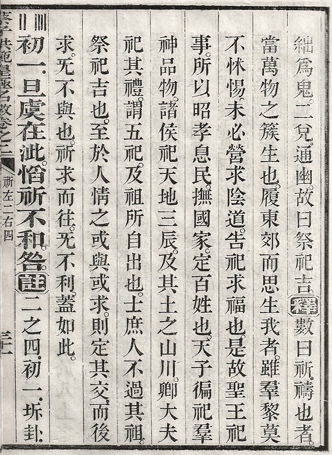 絀爲鬼。二兌通幽。故曰祭祀吉。釋數曰祈禱也者
當萬物之簇生也。履東郊而思生我者。雖羣黎莫
不怵惕。未必營求陰道。告祀求福也。是故聖王祀
事。所以昭孝息民。撫國家定百姓也。天子徧祀羣
神品物。諸侯祀天地三辰。及其土之山川。卿大夫
祀其禮。謂五祀及祖所自出也。士庶人不過其祖
祭祀吉也。至於人情之或與或求。則定其交。而後
求。旡不與也。祈求而往。旡不利。蓋如此。
初一。旦虞在泚。惂祈不和咎。註二之四。初一。坼卦
祈左二右四